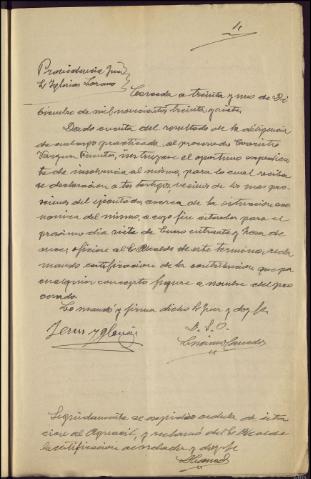 4
Providencia Juez
Sr Iglesias Lozano
a treinta y uno de Di
ciembre de mil novecientos treinta y siete.
Dada cuenta del resultado de la diligencia
de embargo practicada, al procesado
instruyase el oportuno expedien
te de insolvencia al mismo, para lo cual reciba
se declaración a tres testigos, vecinos de los mas pro
ximos del ejecutado, acerca de la situacion eco
nomica del mismo, a cuyo fin citarán para el
próximo día siete de Enero entrante y hora de
oficiese al Sr Alcalde de este termino, recla
mando certificacion de la contribucion que por
cualquier concepto figure a nombre del pro
cesado.
Lo mandó y firma dicho Sr Juez y doy fe.
Jesus Yglesias
D. S. O.
Seguidamente se expidio cedula de cita
cion al Aguacil, y reclamó del Sr Alcalde
la certificacion acordada y doy fe